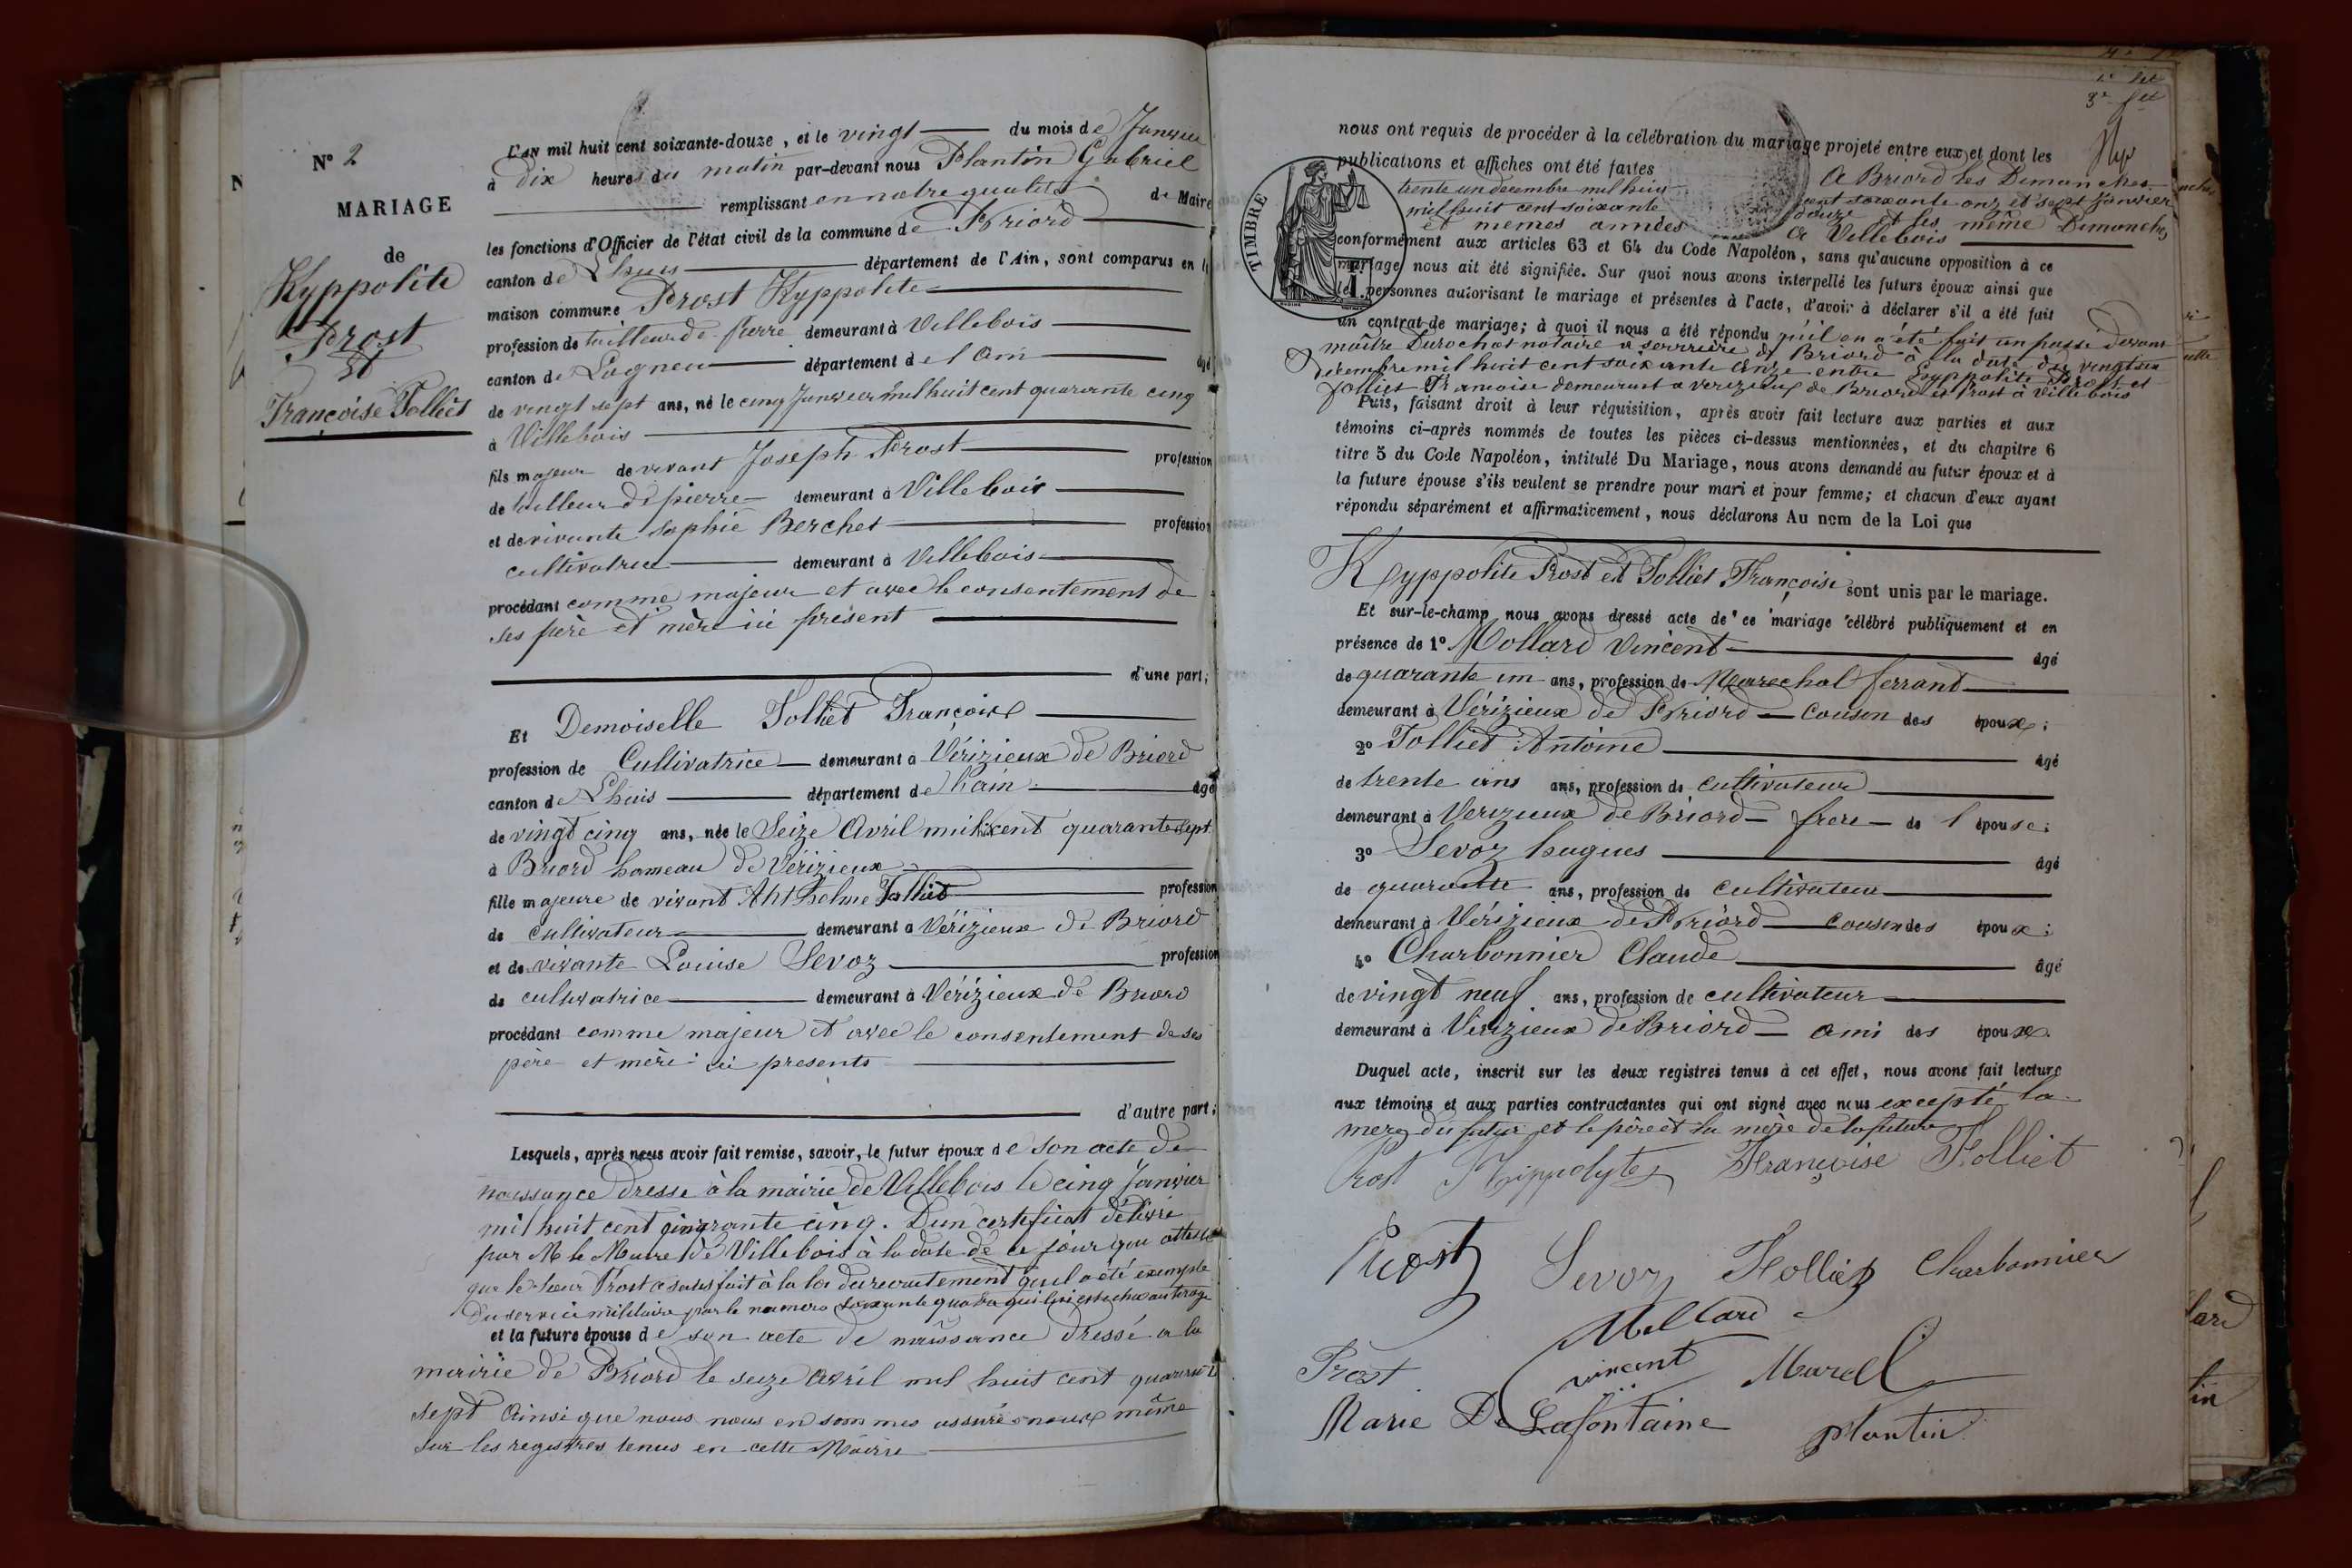 N° 2
MARIAGE
de
Hyppolite
Prost
Et
Françoise Tolliet
L'AN mil huit cent soixante-douze, et le vingt du mois de Janvier
à dix heures du matin par-devant nous Plantin Gabriel
remplissant en notre qualité de Maire
les fonctions d'Officier de l'état civil de la commune de Briord
canton de Lhuis département de l'Ain, sont comparus en la
maison commune Prost Hyppolite
profession de tailleur de pierre demeurant à Villebois
canton de Lagneu département de l'ain âgé
de vingt sept ans, né le cinq Janvier mil huit cent quarante cinq
à Villebois
fils majeur de vivant Joseph Prost profession
de tailleur de pierre demeurant à Villebois
et de vivante Sophie Berchet profession
cultivatrice demeurant à Villebois
procédant comme majeur et avec le consentement de
ses père et mère ici présent
d'une part;
Et Demoiselle Tolliet Françoise
profession de Cultivatrice demeurant a Vérizieux de Briord
canton de Lhuis département de l'ain âgé
de vingt cinq ans, née le Seize Avril mil huit cent quarante sept
à Briord hameau de Vérizieux
fille majeure de vivant Anthelme Tolliet profession
de cultivateur demeurant a Vérizieux de Briord
et de vivante Louise Sevoz profession
de cultivatrice demeurant à Vérizieux de Briord
procédant comme majeur et avec le consentement de ses
père et mère ici presents
d'autre part;
Lesquels, après nous avoir fait remise, savoir, le futur époux de son acte de
naissance dresse à la mairie de Villebois le cinq Janvier
mil huit cent quarante cinq. D'un certificat délivré
par M le Maire de Villebois à la date de ce jour qui atteste
que le sieur Prost a satisfait à la loi du recrutement qu'il a été exempté
du service militaire par le numero soixante quatre qui lui est échu au tirage
et la future épouse de son acte de naissance dressé a la
mairie de Briord le seize avril mil huit cent quarante
sept Ainsi que nous nous en sommes assurés nous même
sur les registres tenus en cette Mairie
nous ont requis de procéder à la célébration du mariage projeté entre eux et dont les
publications et affiches ont été faites A Briord les Dimanches
trente un decembre mil huit cent soixante onz et sept Janvier
mil huit cent soixante douze et les même Dimanches
et memes années a Villebois
TIMBRE
conformément aux articles 63 et 64 du Code Napoléon, sans qu'aucune opposition à ce
mariage nous ait été signifiée. Sur quoi nous avons interpellé les futurs époux ainsi que
les personnes autorisant le mariage et présentes à l'acte, d'avoir à déclarer s'il a été fait
un contrat de mariage; à quoi il nous a été répondu qu'il en a été fait un passé devant
maître Durochat notaire a serrière de Briord à la date du vingt six
Décembre mil huit cent soixante onze entre Hyppolite Prost et
Tolliet Francoise demeurant a verizieux de Briord et Prost à Villebois
Puis, faisant droit à leur réquisition, après avoir fait lecture aux parties et aux
témoins ci-après nommés de toutes les pièces ci-dessus mentionnées, et du chapitre 6
titre 5 du Code Napoléon, intitulé Du Mariage, nous avons demandé au futur époux et à
la future épouse s'ils veulent se prendre pour mari et pour femme; et chacun d'eux ayant
répondu séparément et affirmativement, nous déclarons Au nom de la Loi que
Hyppolite Prost et Tolliet Françoise sont unis par le mariage.
Et sur-le-champ nous avons dressé acte de ce mariage célébré publiquement et en
présence de 1° Mollard Vincent âgé
de quarante un ans, profession de Marechal ferrant
demeurant à Vérizieux de Briord cousin des époux;
2° Tolliet Antoine âgé
de trente ans ans, profession de cultivateur
demeurant à Verizieux de Briord frere de l épouse;
3° Sevoz hugues âgé
de quarante ans, profession de cultivateur
demeurant à Vérizieux de Briord cousin des époux;
4° Charbonnier Claude âgé
de vingt neuf ans, profession de cultivateur
demeurant à Vérizieux de Briord ami des époux.
Duquel acte, inscrit sur les deux registres tenus à cet effet, nous avons fait lecture
aux témoins et aux parties contractantes qui ont signé avec nous excepté la
mere du futur et le père et la mère de la future
Prost Hippolyte Françoise Tolliet
Prost Sevoz Tolliet Charbonnier
Mollard
vincent Murell
Prost
Marie De Lafontaine Plantin